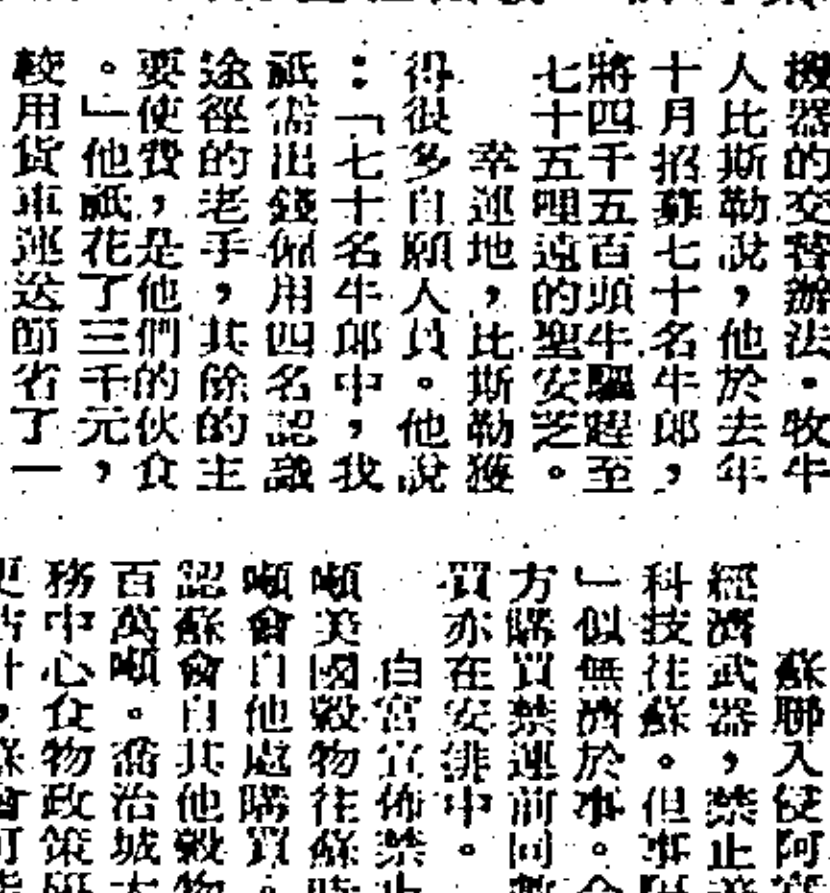 器的交替辦法。牧牛
人比斯勒說，他於去年
十月招募七十名牛郎，
將四千五百頭牛驅趕至
七十五哩遠的聖安芝。
幸運地，比斯勒獲
得很多自願人員。他說
：「七十名牛郎中，我
祇需出錢僱用四名認識
途徑的老手，其餘的主
要使費，是他們的伙食
。」他祇花了三千元，
較用貨車運送節省了一
蘇聯入侵阿
經濟武器，禁止
科技往蘇。但事
」似無濟於事。
方購買禁運前同
買亦在安排中。
白宮宣佈禁止
噸美國穀物往蘇時
噸會自他處購買。
認蘇會自其他穀物
百萬噸。喬治城大
務中心食物政策研